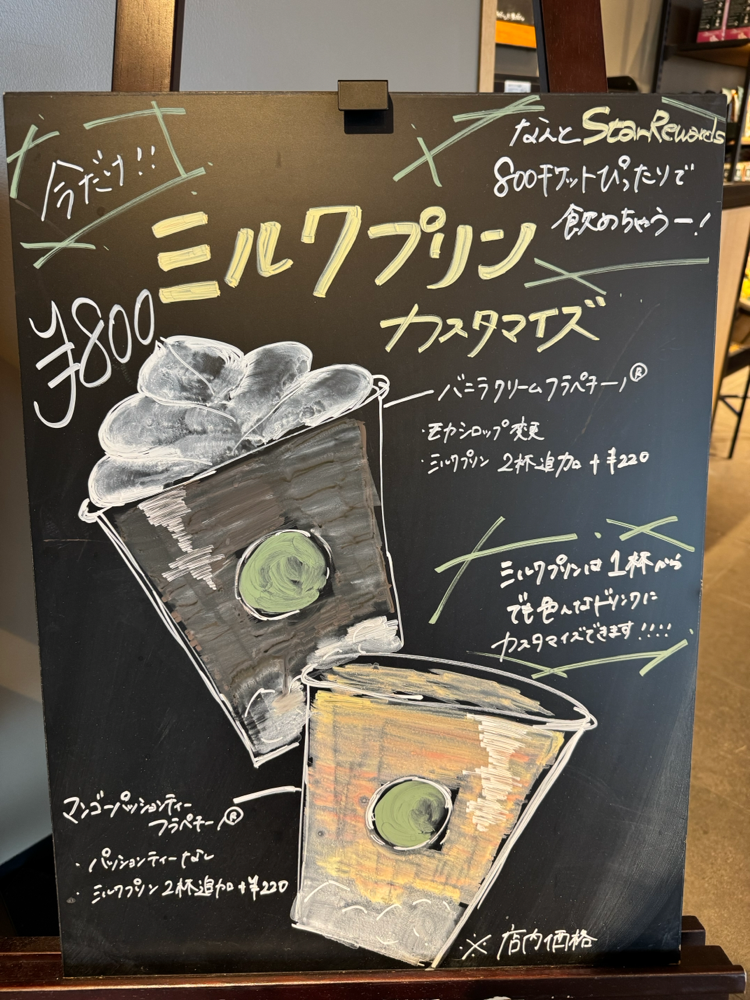 今だけ!!
なんとStarRewards
800チケットぴったりで
飲めちゃうー!
ミルクプリン
カスタマイズ
¥800
バニラクリームフラペチーノ®
・モカシロップ変更
・ミルクプリン 2杯追加 +¥220
ミルクプリンは1杯から
でも色んなドリンクに
カスタマイズできます!!!!
マンゴーパッションティー
フラペチーノ®
・パッションティーなし
・ミルクプリン2杯追加+¥220
※店内価格